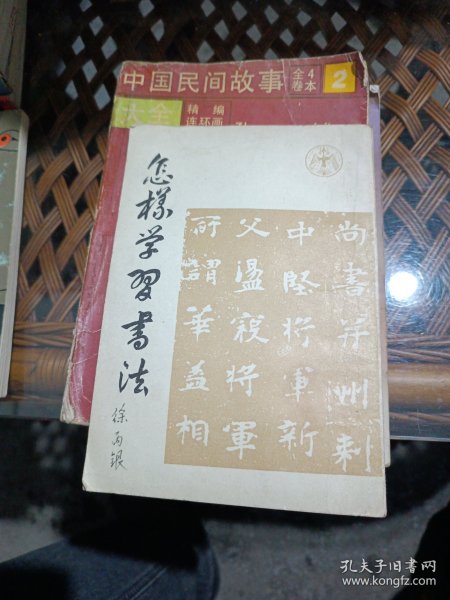 中国民间故事
全4
卷本
2
大全
精编
连环画
怎樣学習書法
徐丙银
尚書并州刺
中堅将軍新
父溫穀将軍
所謂華蓋相
孔夫子旧书网
www.kongfz.com